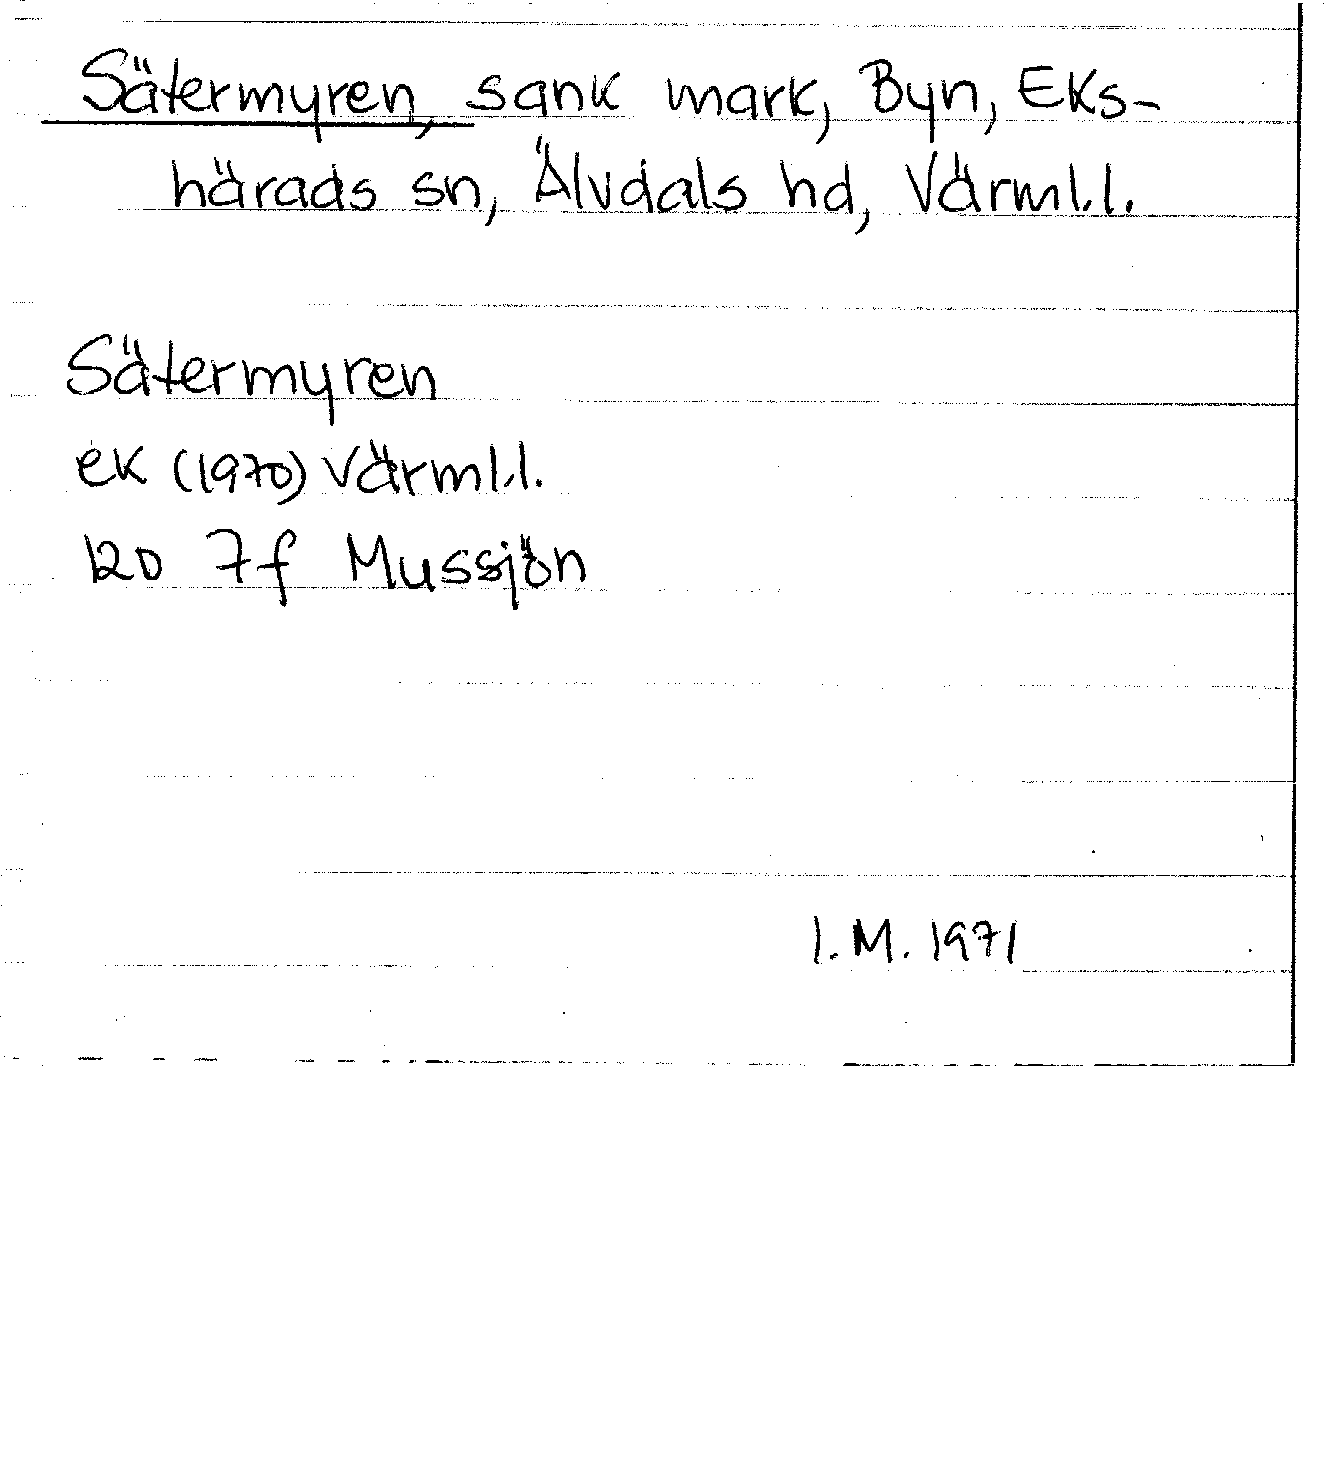 Sätermyren, sank mark, Byn, Eks-
härads sn, Älvdals hd, Värml.l.
Sätermyren
ek (1970) Värml.l.
12D 7f Mussjön
I.M. 1971